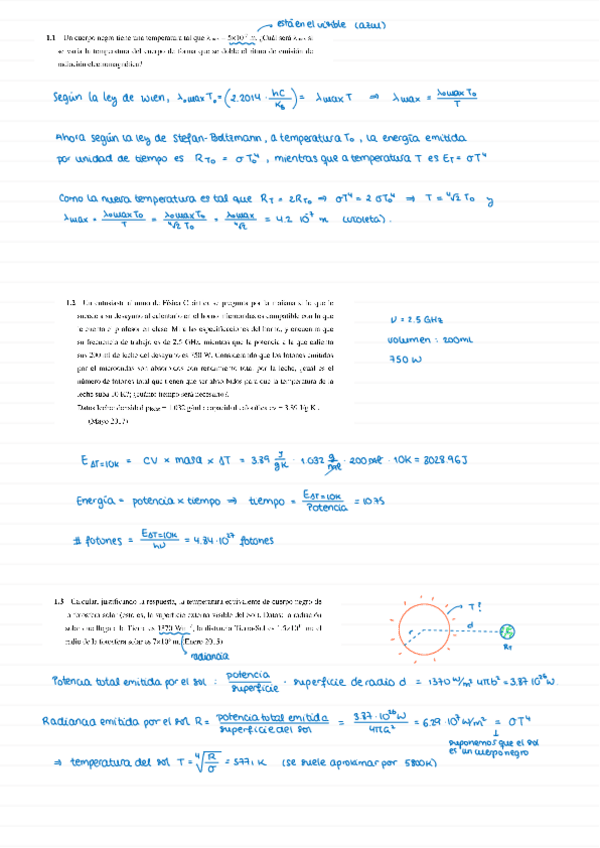 está en el visible (azul)
1.1 Un cuerpo negro tiene una temperatura tal que λmax = 5×10⁻⁷ m. ¿Cuál será λmax si
se varía la temperatura del cuerpo de forma que se dobla el ritmo de emisión de
radiación electromagnética?
Según la ley de Wien, λ₀max T₀ = (2.2014 · hc/K_B) = λmax T ⇒ λmax = λ₀max T₀/T
Ahora según la ley de Stefan-Boltzmann, a temperatura T₀, la energía emitida
por unidad de tiempo es R_T₀ = σT₀⁴, mientras que a temperatura T es E_T = σT⁴
Como la nueva temperatura es tal que R_T = 2R_T₀ ⇒ σT⁴ = 2σT₀⁴ ⇒ T = ⁴√2 T₀ y
λmax = λ₀max T₀/T = λ₀max T₀/⁴√2 T₀ = λ₀max/⁴√2 = 4.2 · 10⁷ m (violeta).
1.2 Un entusiasta alumno de Física C se pregunta por la mañana si lo que le
sucede a su desayuno al calentarlo en el horno microondas es compatible con lo que
le cuenta el profesor en clase. Mira las especificaciones del horno, y encuentra que
su frecuencia de trabajo es de 2.5 GHz, mientras que la potencia a la que calienta
sus 200 ml de leche del desayuno es 750 W. Considerando que los fotones emitidos
por el microondas son absorbidos con rendimiento total por la leche, ¿cuál es el
número de fotones total que tienen que ser absorbidos para que la temperatura de la
leche suba 10 K?; ¿cuánto tiempo será necesario?
Datos leche: densidad = 1.032 g/ml; capacidad calorífica cv = 3.89 J/g K.
(Mayo 2017)
ν = 2.5 GHz
volumen: 200mL
750 W
E_ΔT=10K = CV × masa × ΔT = 3.89 J/gK · 1.032 g/ml · 200ml · 10K = 8028.96J
Energía = potencia × tiempo ⇒ tiempo = E_ΔT=10K/Potencia = 10.7s
# fotones = E_ΔT=10K/hν = 4.84·10²⁷ fotones
1.3 Calcular, justificando la respuesta, la temperatura equivalente de cuerpo negro de
la fotosfera solar (esto es, la superficie externa visible del Sol). Datos: la radiación
solar que llega a la Tierra es 1370 Wm⁻², la distancia Tierra-Sol es 1.5×10¹¹ m y el
radio de la fotosfera solar es 7×10⁸ m. (Enero 2015)
radiancia
T?
r
d
R_T
Potencia total emitida por el sol: potencia/superficie · superficie de radio d = 1370 W/m² 4πD² = 3.87 10²⁶ W.
Radiancia emitida por el sol R = potencia total emitida/superficie del sol = 3.87·10²⁶ W/4πa² = 6.29·10⁷ W/m² = σT⁴
suponemos que el sol
es un cuerpo negro
⇒ temperatura del sol T = ⁴√R/σ = 5771 K (se suele aproximar por 5800K)